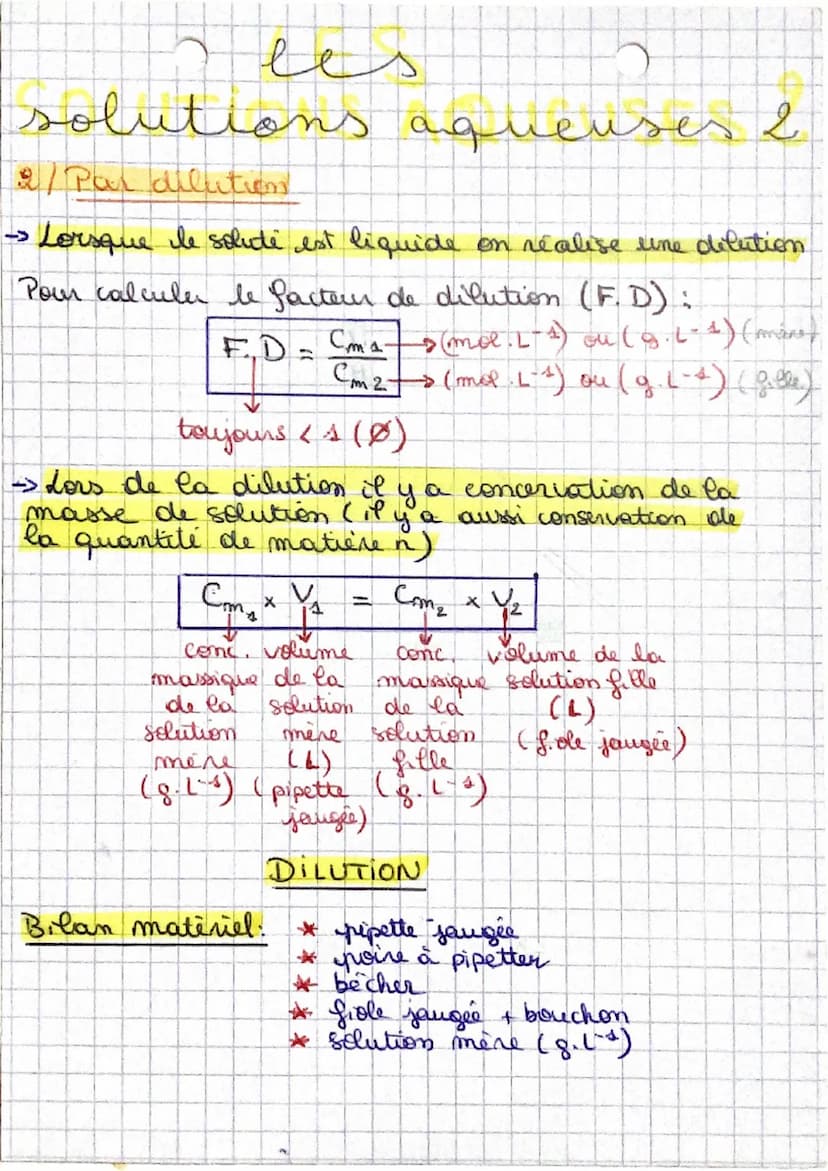 les
solutions aqueuses 2
2/ Par dilution
-> Lorsque le soluté est liquide on réalise une dilution
Pour calculer le facteur de dilution (F.D) :
F.D = Cm1 / Cm2
Cm1 → (mol.L-1) ou (g.L-1) (mère)
Cm2 → (mol.L-1) ou (g.L-1) (fille)
toujours < 1 (Ø)
-> Lors de la dilution il y a concervation de la
masse de solution (il y a aussi conservation de
la quantité de matière n)
Cm1 x V1 = Cm2 x V2
conc. massique de la solution mère (g.L-1)
volume de la solution mère (L) (pipette jaugée)
conc. massique de la solution fille (g.L-1)
volume de la solution fille (L) (fiole jaugée)
DILUTION
Bilan matèriel:
* pipette jaugée
* poire à pipetter
* bécher
* fiole jaugée + bouchon
* solution mère (g.L-1)